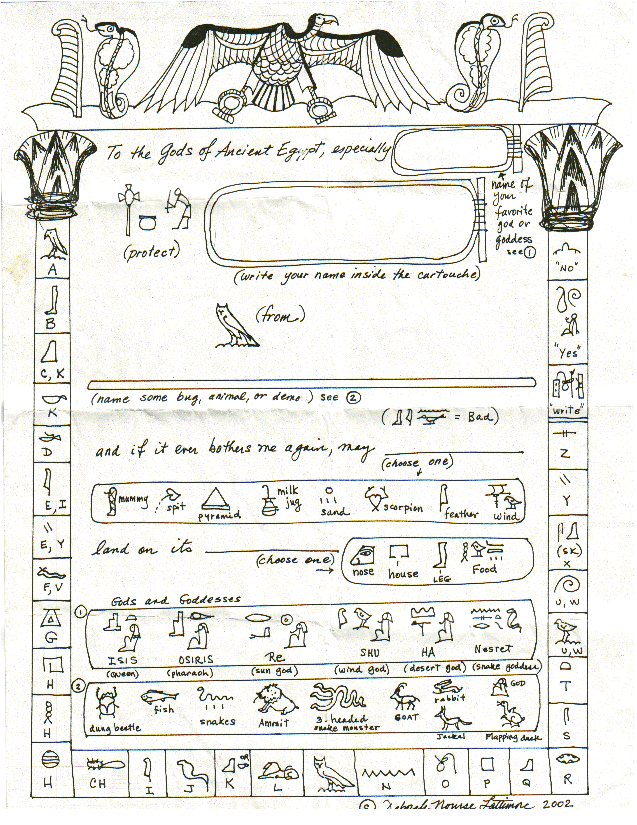 To the Gods of Ancient Egypt, especially
name of
your
favorite
god or
goddess
see ①
(protect)
(write your name inside the cartouche)
(from)
(name some bug, animal, or demo.) see ②
( = Bad)
and if it ever bothers me again, may
(choose one)
mummy spit pyramid milk jug sand scorpion feather wind
land on its
(choose one)
nose house LEG Food
Gods and Goddesses
①
ISIS OSIRIS Re SHU HA Nesret
(Queen) (pharaoh) (sun god) (wind god) (desert god) (snake goddess)
②
dung beetle fish snakes Ammit 3-headed snake monster GOAT rabbit Jackal GOD Flapping duck
A
B
C, K
K
D
E, I
E, Y
F, V
G
H
H
H
"NO"
"Yes"
"write"
Z
Y
(SK)
X
U, W
U, W
T
S
R
CH I J K OR L M N O P Q
© Deborah Nourse Lattimore 2002